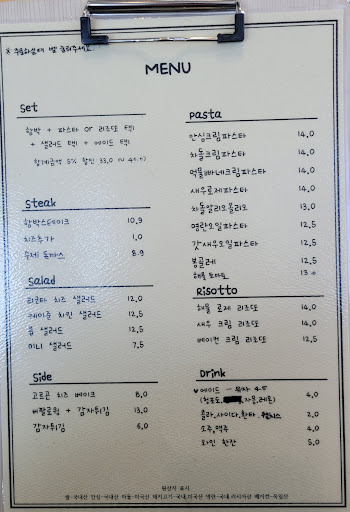 ※ 주문하실때 벨 눌러주세요
MENU
Set
함박 + 파스타 or 리조또 택1
+ 샐러드 택1 + 에이드 택1
합계금액 5% 할인 33.0 ~ 41.1
Steak
함박스테이크 10.9
치즈추가 1.0
수제 돈까스 8.9
Salad
리코타 치즈 샐러드 12.0
케이준 치킨 샐러드 12.5
콥 샐러드 12.5
미니 샐러드 7.5
Side
고르곤 치즈 베이크 8.0
버팔로윙 + 감자튀김 13.0
감자튀김 6.0
Pasta
안심크림파스타 14.0
차돌크림파스타 14.0
먹물빠네크림파스타 14.0
새우로제파스타 14.0
차돌알리오올리오 13.0
명란오일파스타 12.5
갓새우오일파스타 12.5
봉골레 12.5
해물 토마토 13.0
Risotto
해물 로제 리조또 14.0
새우 크림 리조또 14.0
베이컨 크림 리조또 12.5
Drink
에이드 - 4.5
(청포도, 자몽,레몬) 4.0
콜라,사이다,환타, 2.0
소주,맥주 4.0
와인 한잔 5.0
원산지 표시